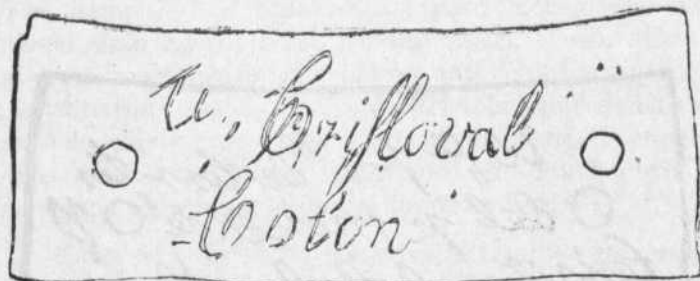 U., Cristoval
Colon